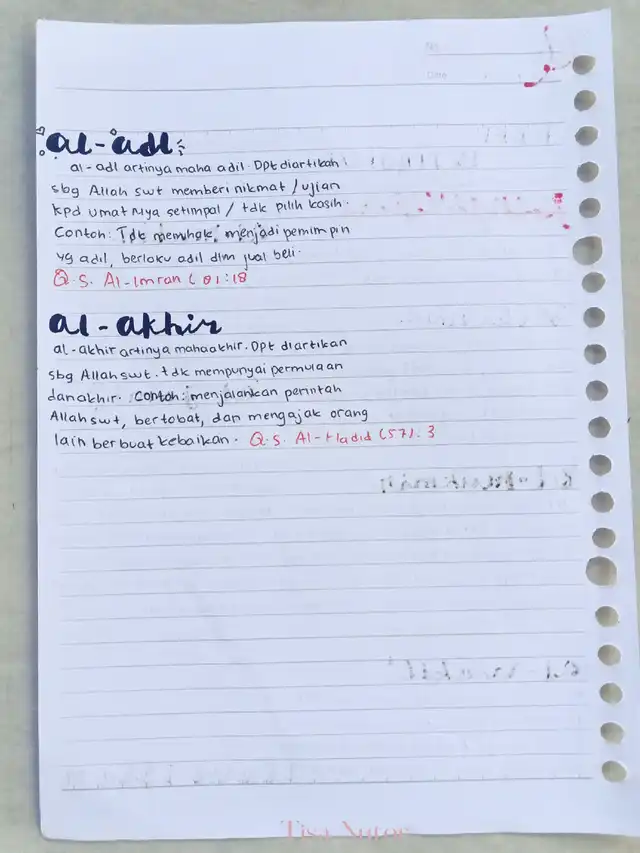 No
Date
al-adl
al-adl artinya maha adil. Dpt diartikah
sbg Allah swt memberi nikmat / ujian
kpd umat Nya setimpal / tdk pilih kasih.
Contoh: Tdk menjadi pemimpin
yg adil, berlaku adil dlm jual beli.
Q.S. Al-Imran ( 01:18
al-akhir
al-akhir artinya mahaakhir. Dpt diartikan
sbg Allah swt. tdk mempunyai permulaan
dan akhir. Contoh: menjalankan perintah
Allah swt, bertobat, dan mengajak orang
lain berbuat kebaikan. Q.S. Al-Hadid (57). 3